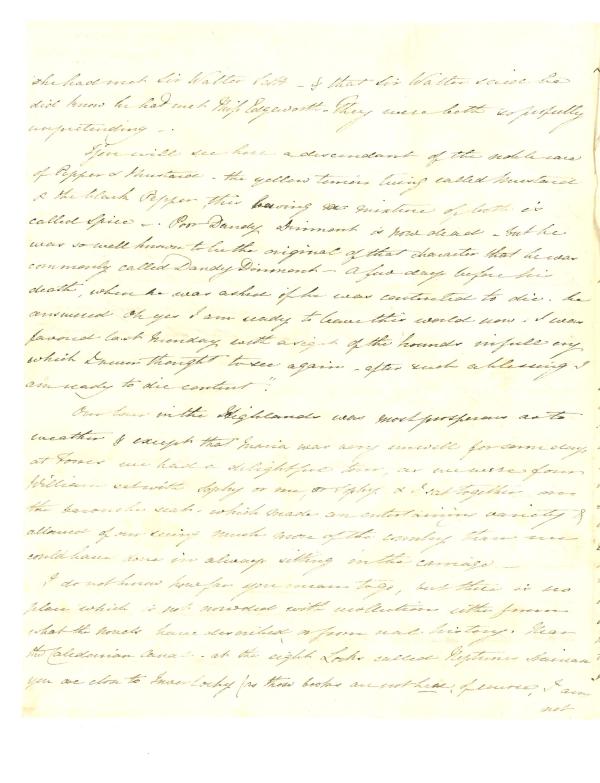 she had met Sir Walter Scott - & that Sir Walter said he
did know he had met Miss Edgeworth - They were both so perfectly
unpretending -.
You will see here a descendant of the noble race
of Pepper & Mustard - the yellow terriers being called Mustard
& the black Pepper, this having a mixture of both is
called Spice -. Poor Dandy Dinmont is now dead - but he
was so well known to be the original of that character that he was
commonly called Dandy Dinmont - A few days before his
death, when he was asked if he was contented to die. he
answered Oh yes I am ready to leave this world now - I was
favoured last Monday with a sight of the hounds in full cry
which I never thought to see again - after such a blessing I
am ready to die content".
Our tour in the Highlands was most prosperous as to
weather & except that Maria was very unwell for some days
at Forres we had a delightful tour, as we were four
William sat with Sophy or me, or Sophy & I sat together on
the barouche seat - which made an entertaining variety &
allowed of our seeing much more of the country than we
could have done in always sitting in the carriage -
I do not know how far you mean to go, but there is no
place which is not crowded with recollection either from
what the novels have described or from nat. history. Near
the Caledonian Canal - at the eight Locks called Neptunes Staircase
you are close to Inverlochy (as those books are not here, of course, I am
not